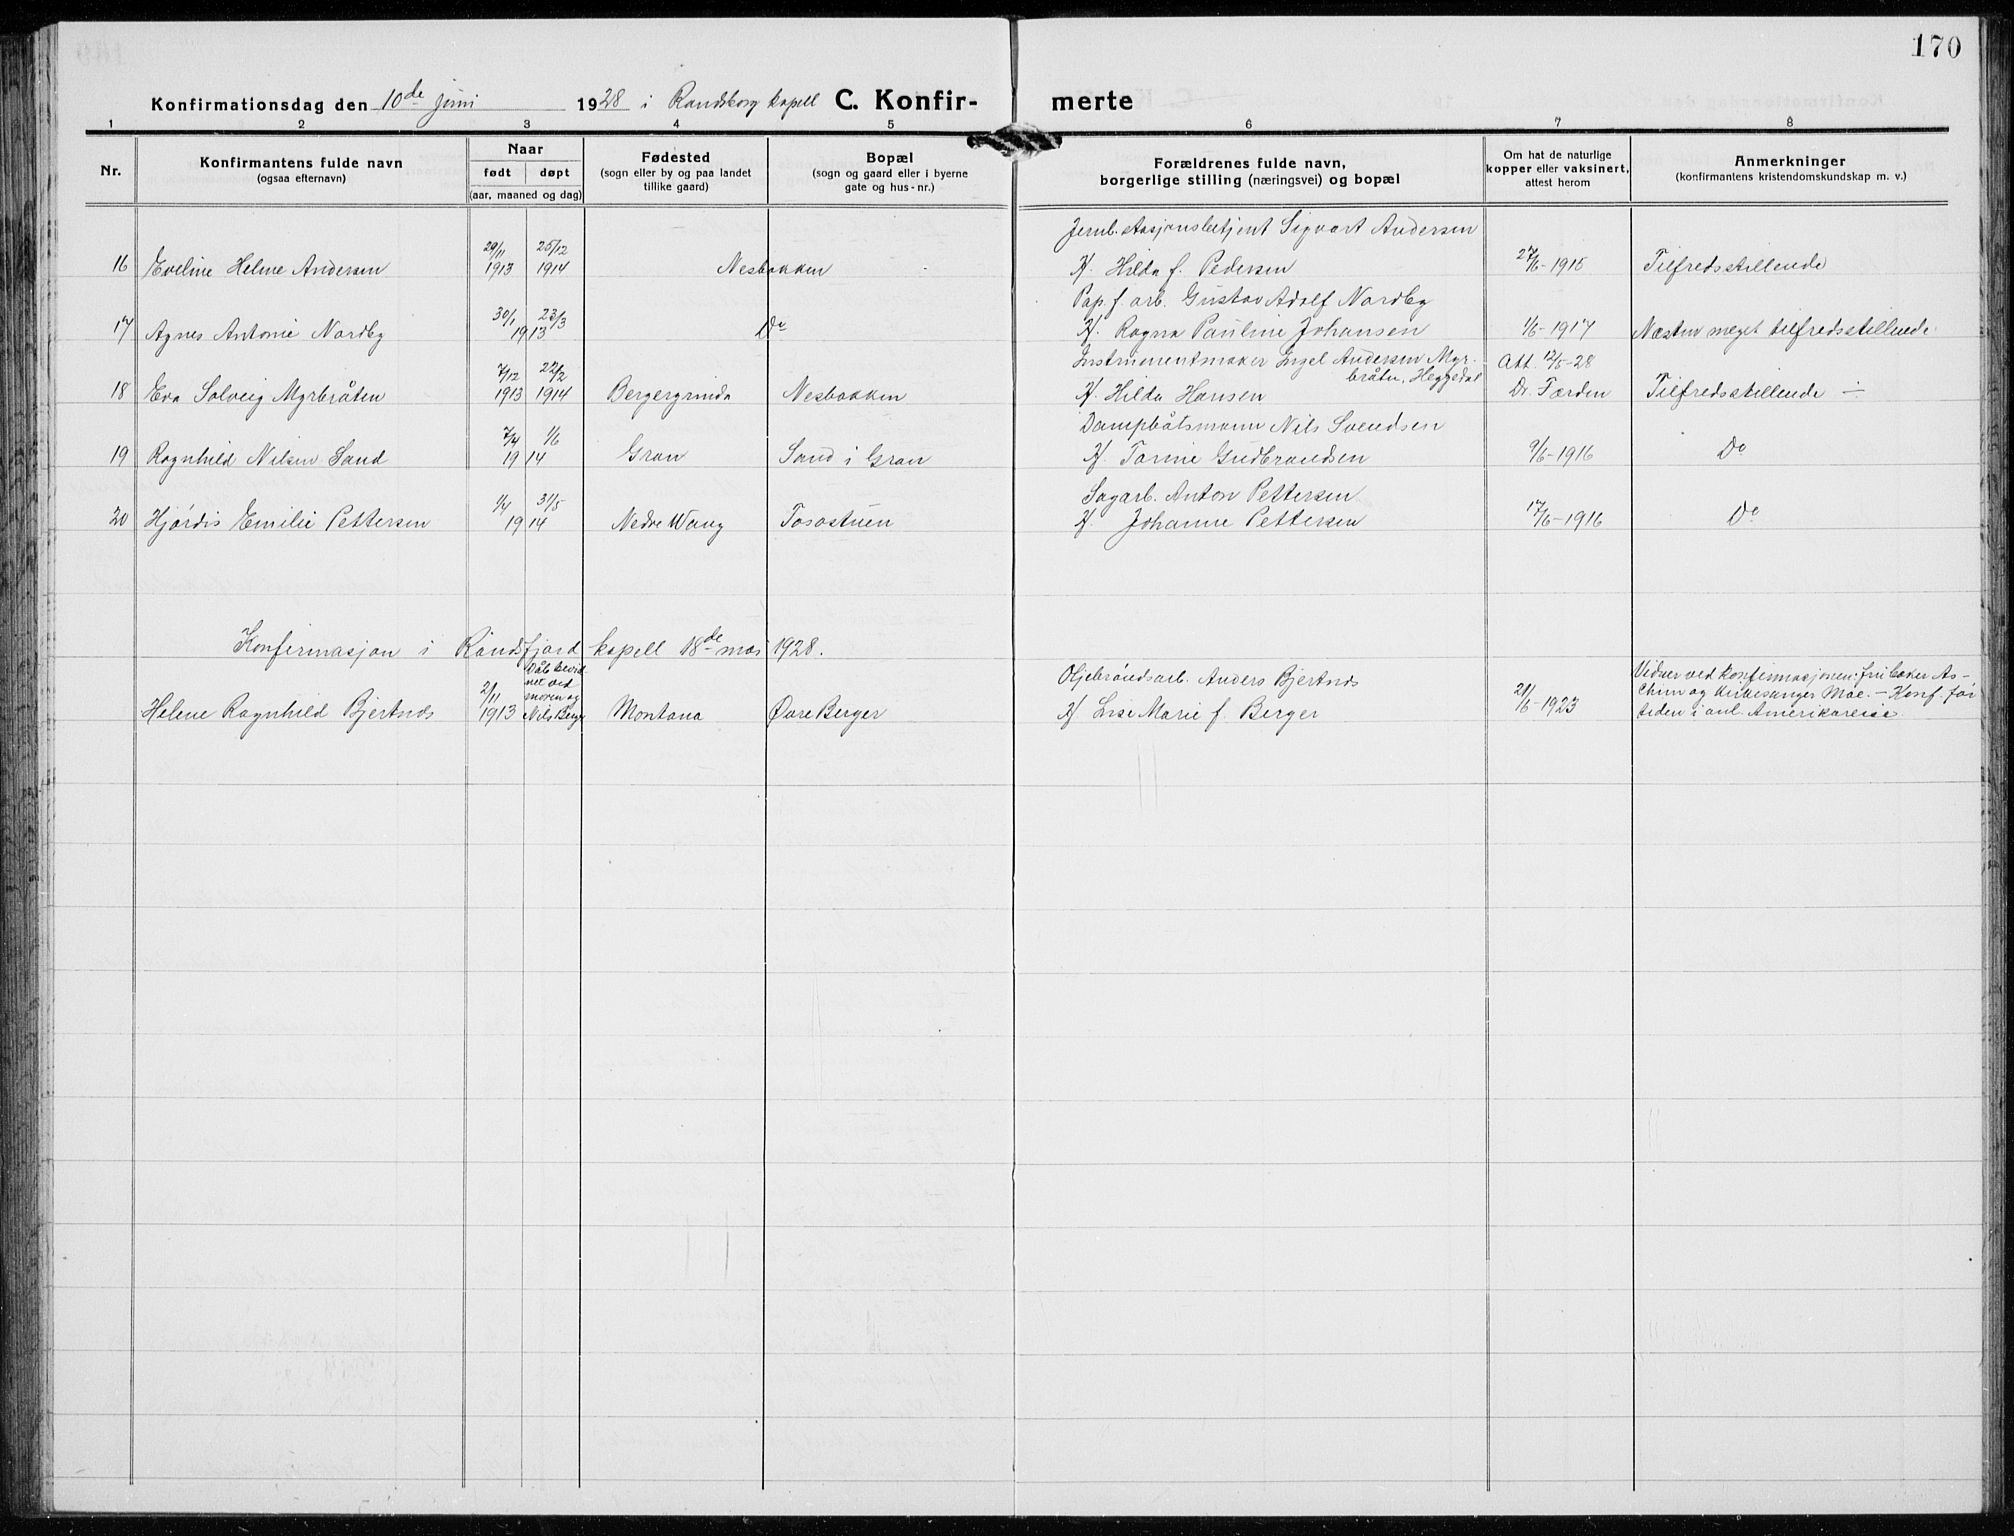 170
Konfirmationsdag den 10de juni 1928 i Randsborg kapell C. Konfir- merte
1 2 3 4 5 6 7 8
Nr.
Konfirmantens fulde navn
(ogsaa efternavn)
Naar
født døpt
(aar, maaned og dag)
Fødested
(sogn eller by og paa landet
tillike gaard)
Bopæl
(sogn og gaard eller i byerne
gate og hus-nr.)
Forældrenes fulde navn,
borgerlige stilling (næringsvei) og bopæl
Om hat de naturlige
kopper eller vaksinert,
attest herom
Anmerkninger
(konfirmantens kristendomskundskap m. v.)
Jernb. stasjonsbetjent Sigvart Andersen
29/11 25/12
16 Eveline Helene Andersen 1913 1914 Nesbakken H. Hilda f. Pedersen 27/6-1915 Tilfredsstillende
Pap. f. arb. Gustav Adolf Nordby
30/1 23/3
17 Agnes Antonie Nordby 1913 Do H. Ragna Pauline Johansen 1/6-1917 Næsten meget tilfredsstillende
Instrumentmaker Engel Andersen Myr-
bråten, Heggedal
7/12 22/2 Att. 12/5-28
18 Eva Solveig Myrbråten 1913 1914 Bergergrinda Nesbakken H. Hilda Hansen Dr. Færden Tilfredsstillende ÷
Dampbåtsmann Nils Svendsen
7/4 1/6
19 Ragnhild Nilsen Sand 1914 Gran Sand i Gran H. Torine Gudbrandsen 9/6-1916 Do
Sagarb. Anton Pettersen
1/4 31/5
20 Hjørdis Emilie Pettersen 1914 Nedre Wang Tosostuen H. Johanne Pettersen 17/6-1916 Do
Konfirmasjon i Randsfjord kapell 18de mai 1928.
Dåb bevid-
net ved
moren og
Nils Berger
Oljebrøndsarb. Anders Bjertnes
2/11
Helene Ragnhild Bjertnes 1913 Montana Øvre Berger H. Lise Marie f. Berger 21/6-1923
Vidner ved konfirmasjonen: fru baker As-
chim og kirkesanger Moe. - Konf. før
tiden i anl. Amerikareise.